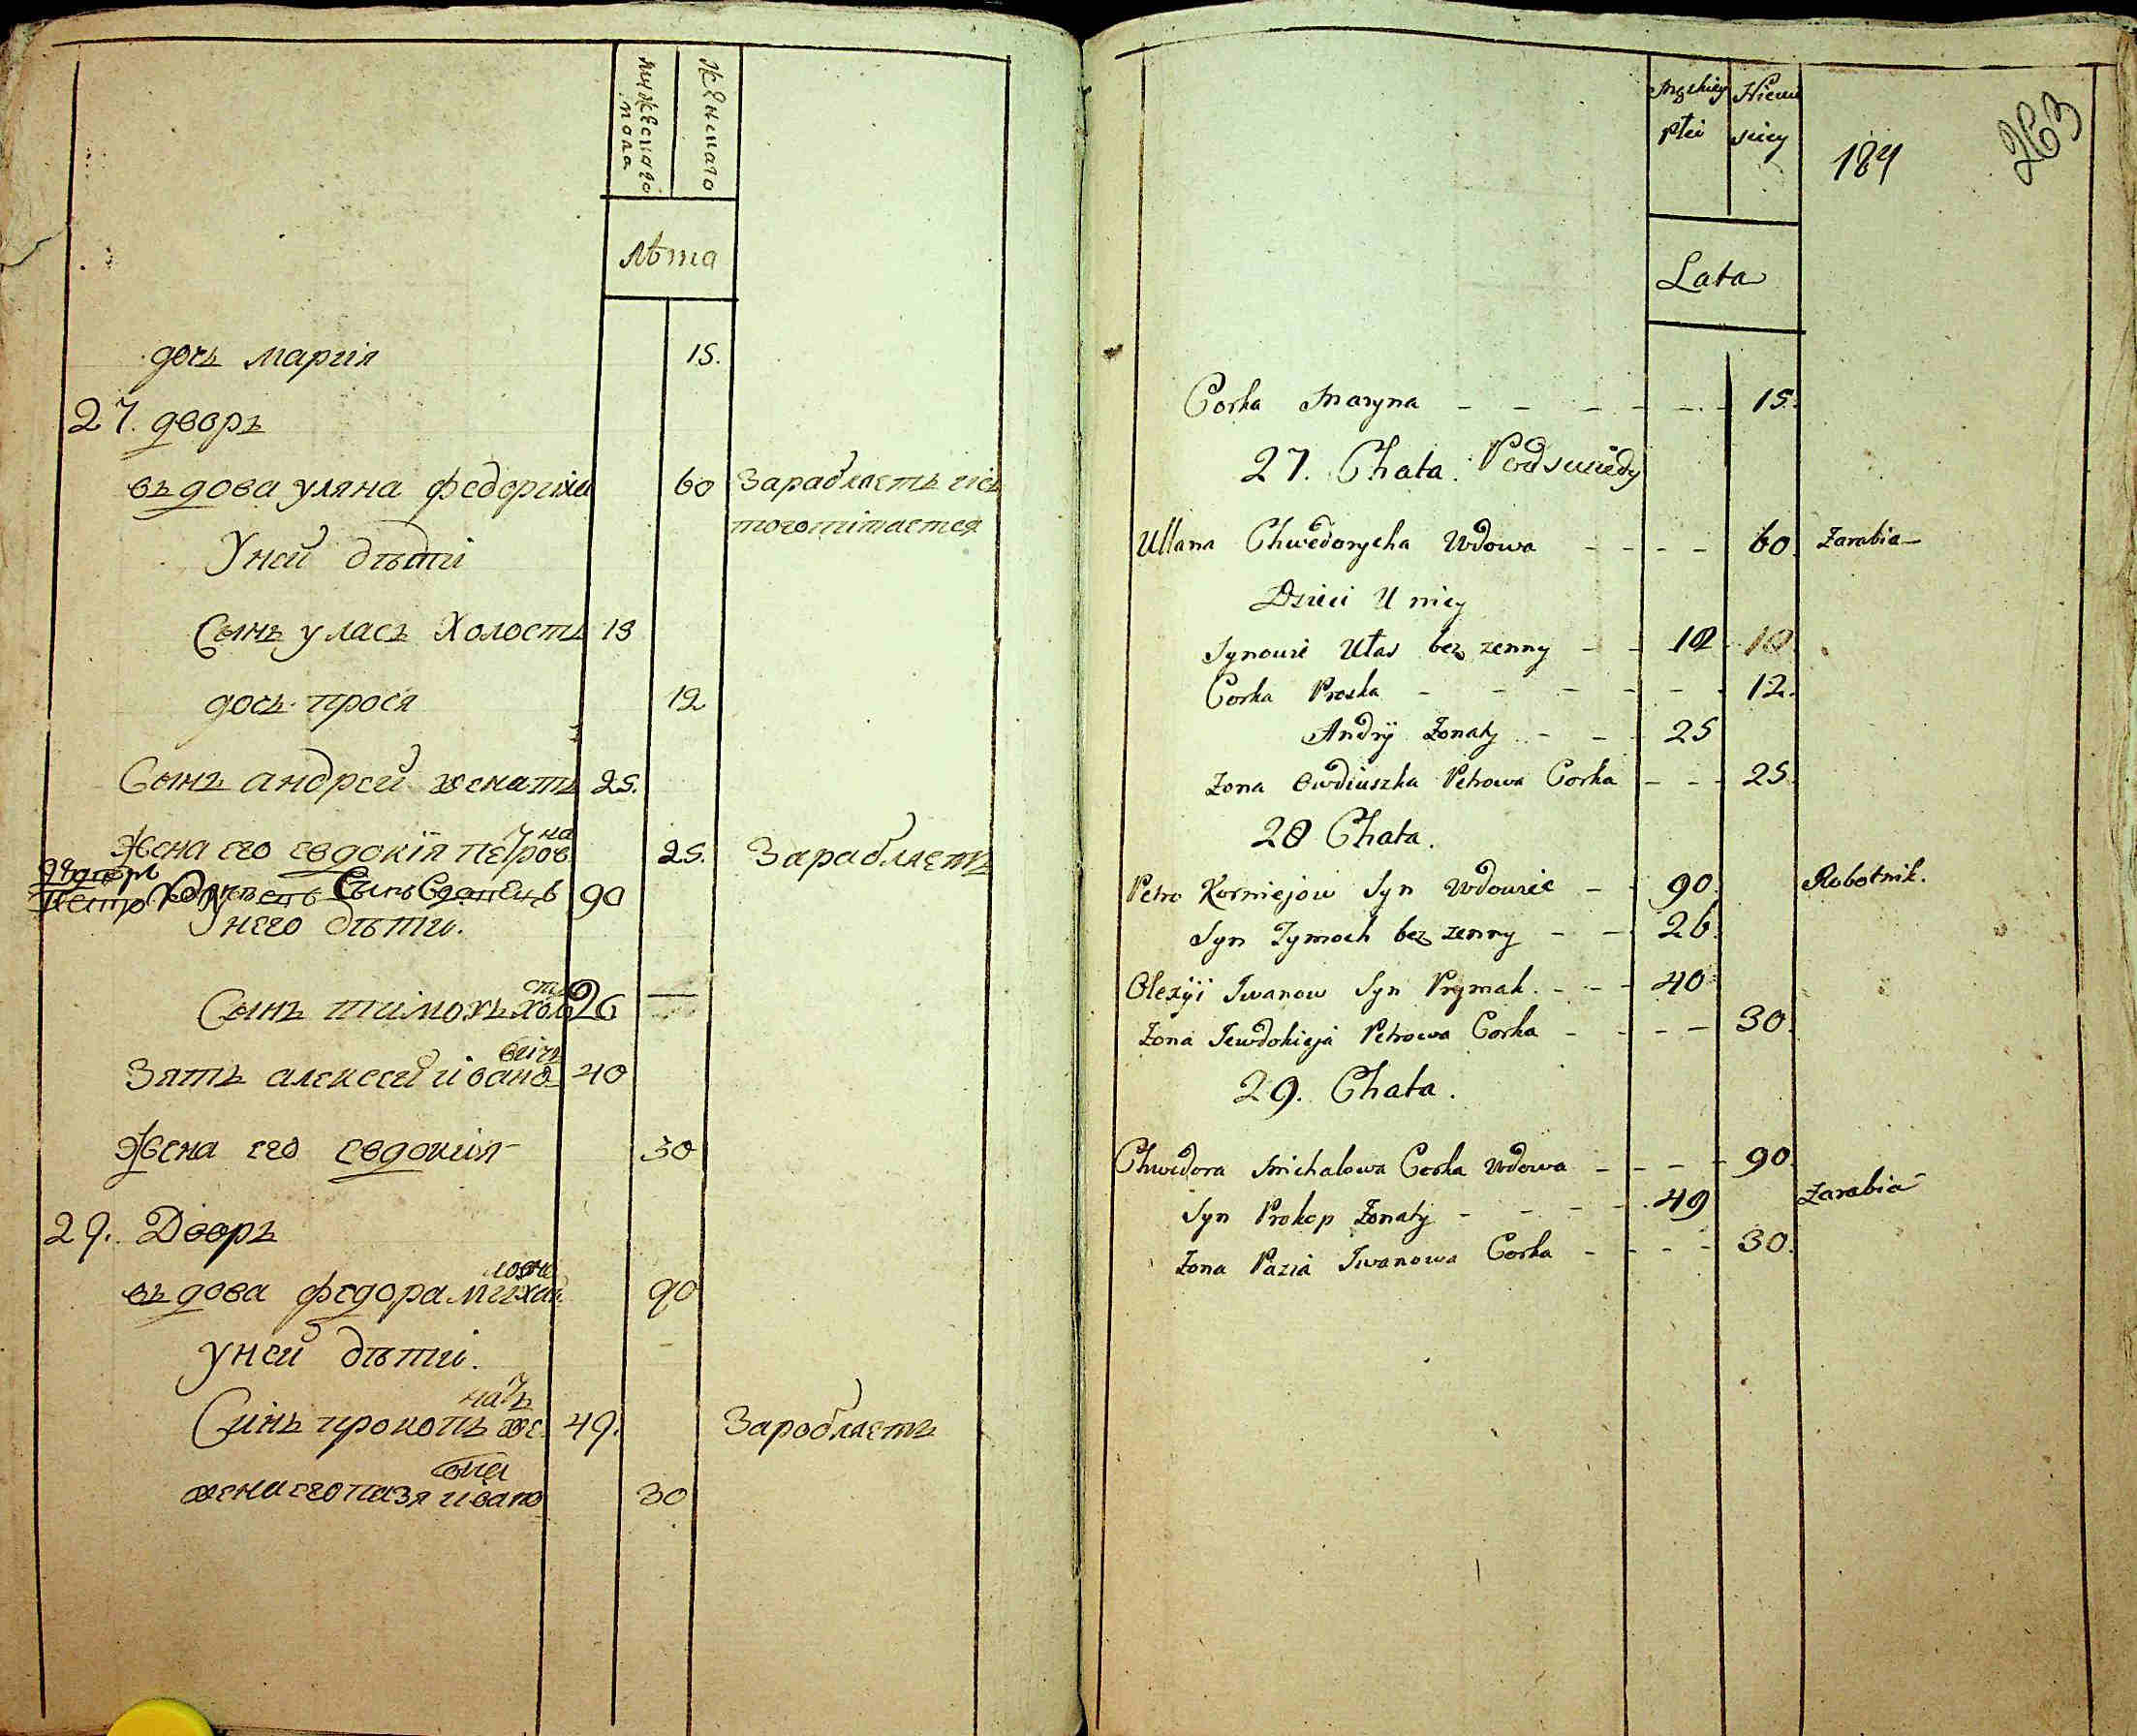 мужескаго пола
женскаго
лѣта
дочь марія 15.
27. дворъ
въдова уляна федориха 60 Зарабляеть ись
того питается
Уней дѣти
Сынъ уласъ Холость 18
дочь прося 12
Сынъ андрей женатъ 25.
Жена его евдокія петровна 25. Зарабляеть
двдтеръ
Петро Корнѣевъ Сынъ 90
Унего дѣти.
Сынъ тимохъ холостъ 26 —
Зять алексей ивановичъ 40
Жена его евдокия 30
29. Дворъ
въдова федора михайловна 90
уней дѣти.
Синъ прокопъ женатъ 49. Заробляеть
жена его пазя иванова 30
Męskiey płci
Niewiesciey
184
263
Lata
Corka Maryna - - - - - - 15.
27. Chata. Podsusiedy
Ullana Chwedorycha Wdowa - - - - 60. Zarabia
Dzieci U niey
Synowie Ułas bez zenny - - 18 18
Corka Proska - - - - - - 12.
Andrij Zonaty - - - 25
Zona Owdiuszka Petrowa Corka - - - 25.
28 Chata.
Petro Korniejow Syn Wdowiec - - 90. Robotnik.
Syn Tymoch bez zenny - - 26.
Olexyi Iwanow Syn Prymak. - - - 40
Zona Jewdokieja Petrowa Corka - - - - 30.
29. Chata.
Chwedora Michałowa Corka Wdowa - - - - 90.
Syn Prokop Zonaty - - - - 49 Zarabia
Zona Pazia Iwanowa Corka - - - - 30.